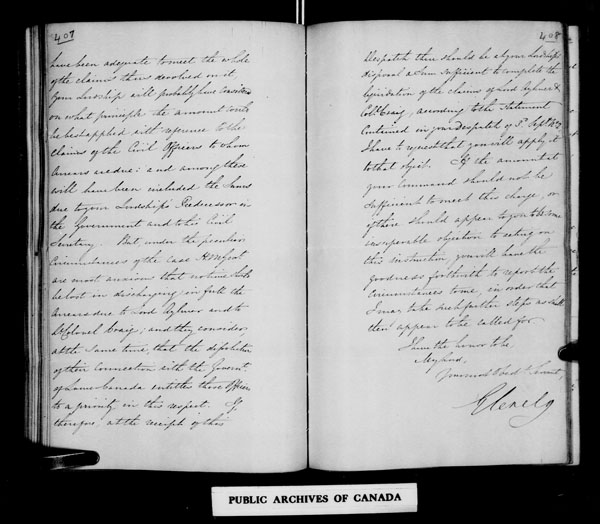 407
have been adequate to meet the whole
of the claims then devolved on it
Your Lordship will probably have considered
on what principle the amount could
be best applied with reference to the
claims of the Civil Officers to whom
Arrears are due: and among these
will have been included the Sums
due to your Lordship's Predecessor in
the Government and to his Civil
Secretary. But under the peculiar
Circumstances of the case
are most anxious that no time should
be lost in discharging in full the
Arrears due to Lord Aylmer and to
Lt Colonel Craig; and they consider
at the same time, that the
of their Connection with the Governt
of Lower Canada entitles those Officers
to a priority in this respect. If
therefore, at the receipt of this
408
Despatch there should be at your Lordship's
disposal a Sum sufficient to complete the
liquidation of the claims of Lord Aylmer &
Colol Craig, according to the Statement
Contained in your Despatch of
I have to request that you will apply it
to that object. If the amount at
your Command should not be
Sufficient to meet this charge, or
if there should appear to you to be some
insuperable objection to acting on
this instruction, you will have the
goodness forthwith to report the
Circumstances to me, in order that
I may take such further steps as shall
then appear to be called for.
I have the honor to be,
My Lord,
Your most obedt Servant,
Glenelg
PUBLIC ARCHIVES OF CANADA